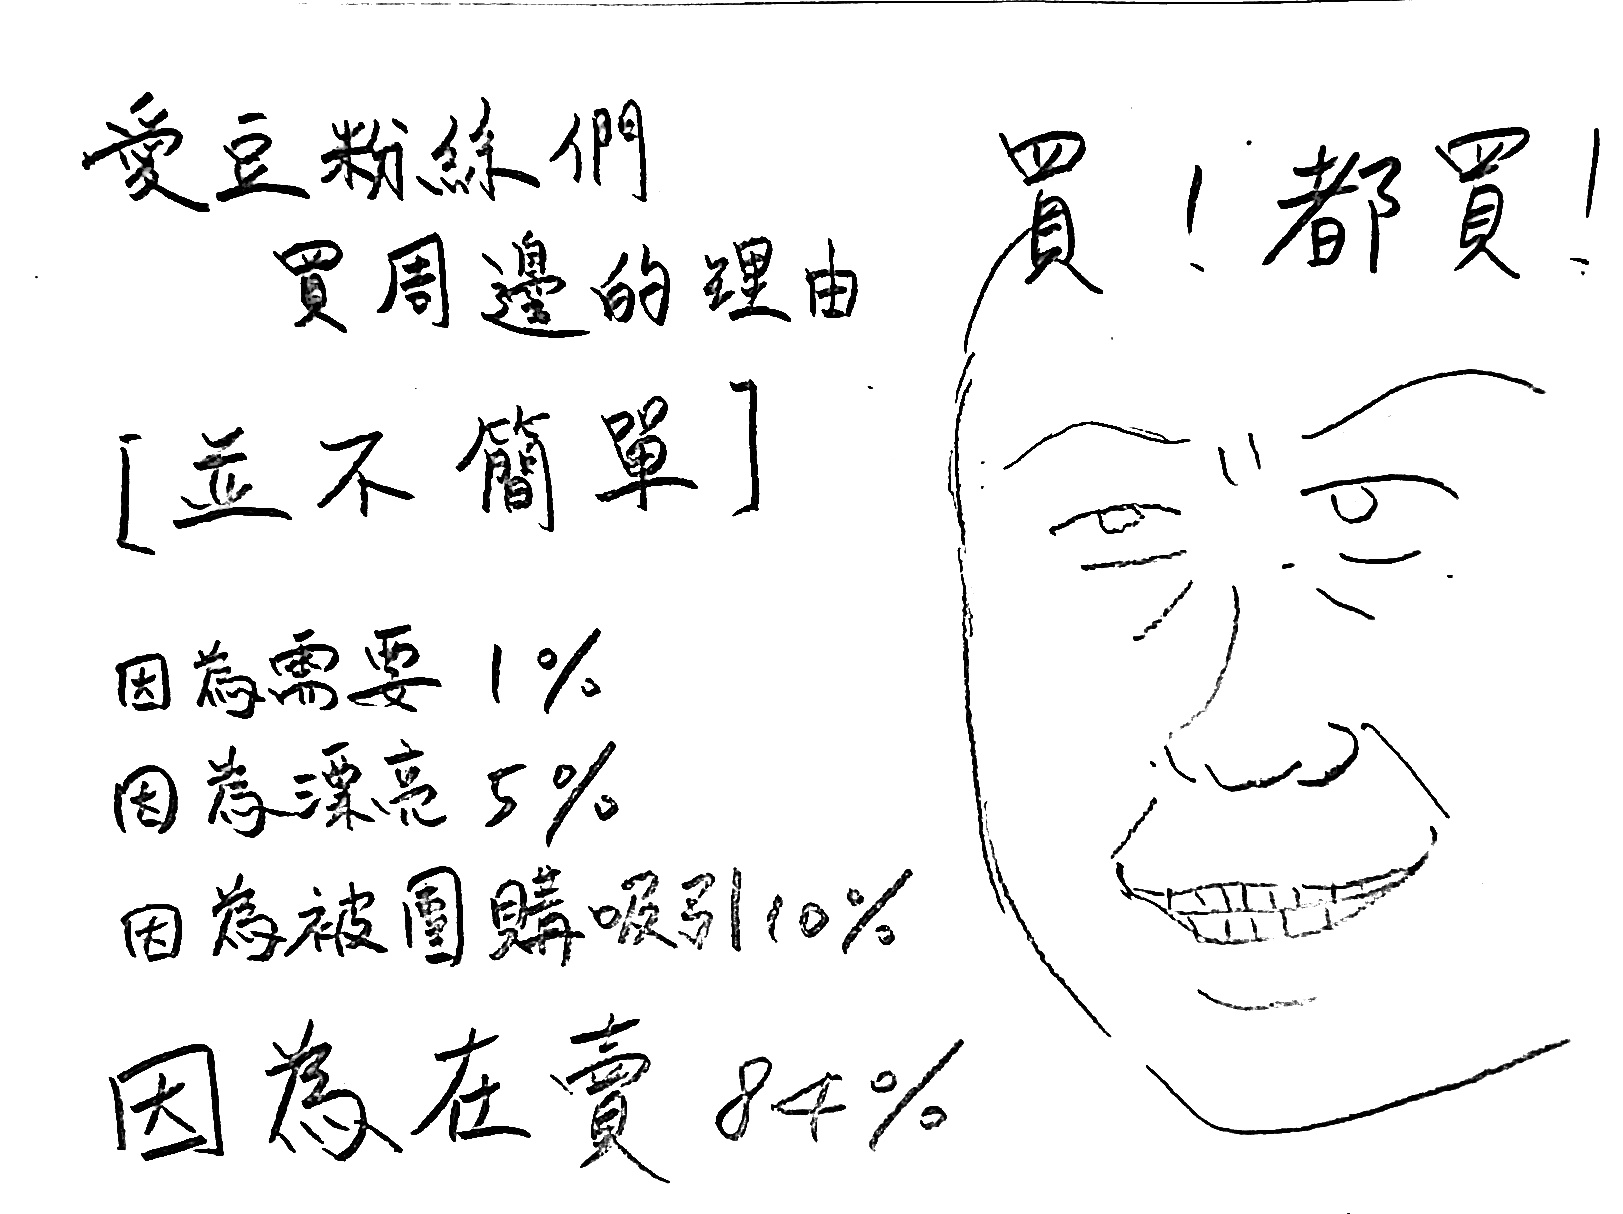 愛豆粉絲們
買周邊的理由
[並不簡單]
因為需要 1%
因為漂亮 5%
因為被團購吸引 10%
因為在賣 84%
買！都買！